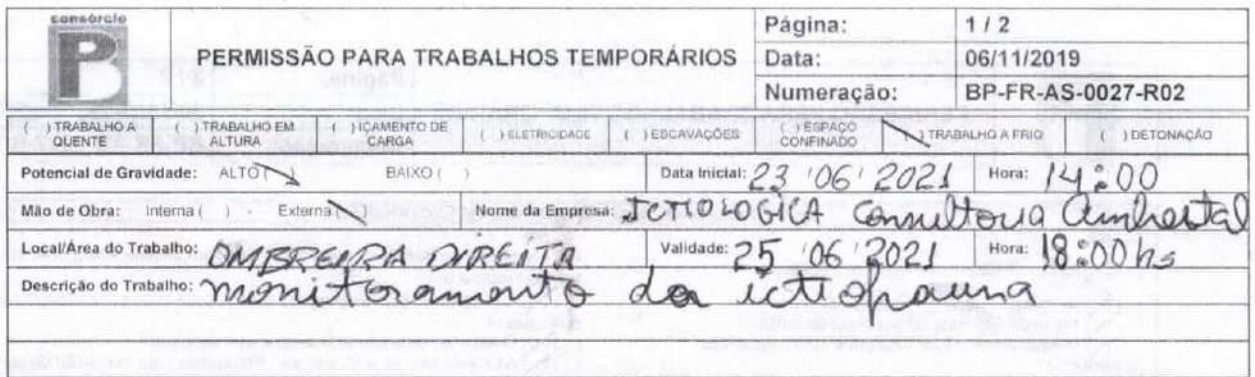 consórcio
PB
PERMISSÃO PARA TRABALHOS TEMPORÁRIOS
Página: 1 / 2
Data: 06/11/2019
Numeração: BP-FR-AS-0027-R02
( ) TRABALHO A QUENTE ( ) TRABALHO EM ALTURA ( ) IÇAMENTO DE CARGA ( ) ELETRICIDADE ( ) ESCAVAÇÕES ( ) ESPAÇO CONFINADO (\) TRABALHO A FRIO ( ) DETONAÇÃO
Potencial de Gravidade: ALTO (\) BAIXO ( ) Data Inicial: 23/06/2021 Hora: 14:00
Mão de Obra: Interna ( ) - Externa (\) Nome da Empresa: ICTIOLOGICA Consultoria Ambiental
Local/Área do Trabalho: OMBREIRA DIREITA Validade: 25/06/2021 Hora: 18:00 hs
Descrição do Trabalho: monitoramento da ictiofauna